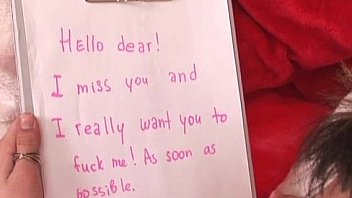 Hello dear!
I miss you and
I really want you to
fuck me! As soon as
possible.